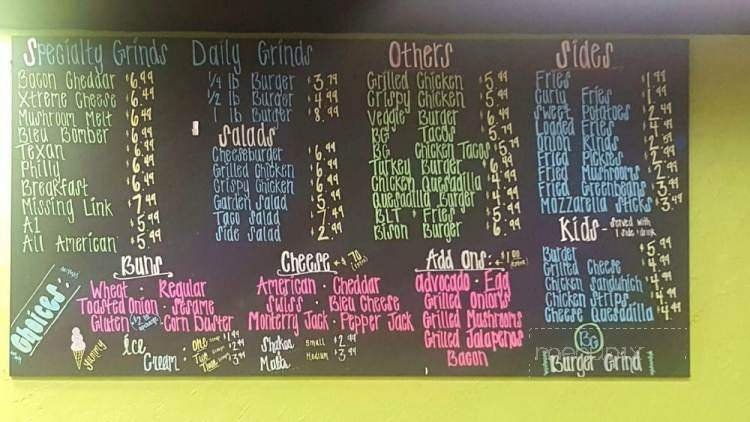 Specialty Grinds
Bacon Cheddar $6.99
Xtreme Cheese $6.49
Mushroom Melt $6.99
Bleu Bomber $6.99
Texan $6.99
Philly $6.99
Breakfast $6.99
Missing Link $7.49
A1 $5.99
All American $5.99
Daily Grinds
1/4 lb Burger $3.79
1/2 lb Burger $4.99
1 lb Burger $8.99
Salads
Cheeseburger $6.99
Grilled Chicken $6.99
Crispy Chicken $6.99
Garden Salad $5.99
Taco Salad $7.99
Side Salad $2.99
Others
Grilled Chicken $5.99
Crispy Chicken $5.99
Veggie Burger $6.99
BG Tacos $5.79
BG Chicken Tacos $5.79
Turkey Burger
Chicken Quesadilla
Quesadilla Burger
BLT + Fries $5.99
Bison Burger
Sides
Fries $1.99
Curly Fries
Sweet Potatoes
Loaded Fries
Onion Rings
Fried Pickles
Fried Mushrooms
Fried Greenbeans
Mozzarella Sticks $3.99
Kids - served with
1 side + drink
Burger $5.99
Grilled Cheese $4.99
Chicken Sandwich $4.99
Chicken Strips $4.99
Cheese Quesadilla $4.99
Choices:
Buns
Wheat · Regular
Toasted Onion · Sesame
Gluten Corn Duster
Cheese + $.70
American · Cheddar
Swiss · Bleu Cheese
Monterry Jack · Pepper Jack
Add Ons: + $1.00
advocado · Egg
Grilled Onions
Grilled Mushrooms
Grilled Jalapenos
Bacon
yummy
Ice Cream:
one scoop $1.99
Two scoops $2.99
Three $3.99
Shakes Small $2.99
Malts Medium $3.99
BG
Burger Grind